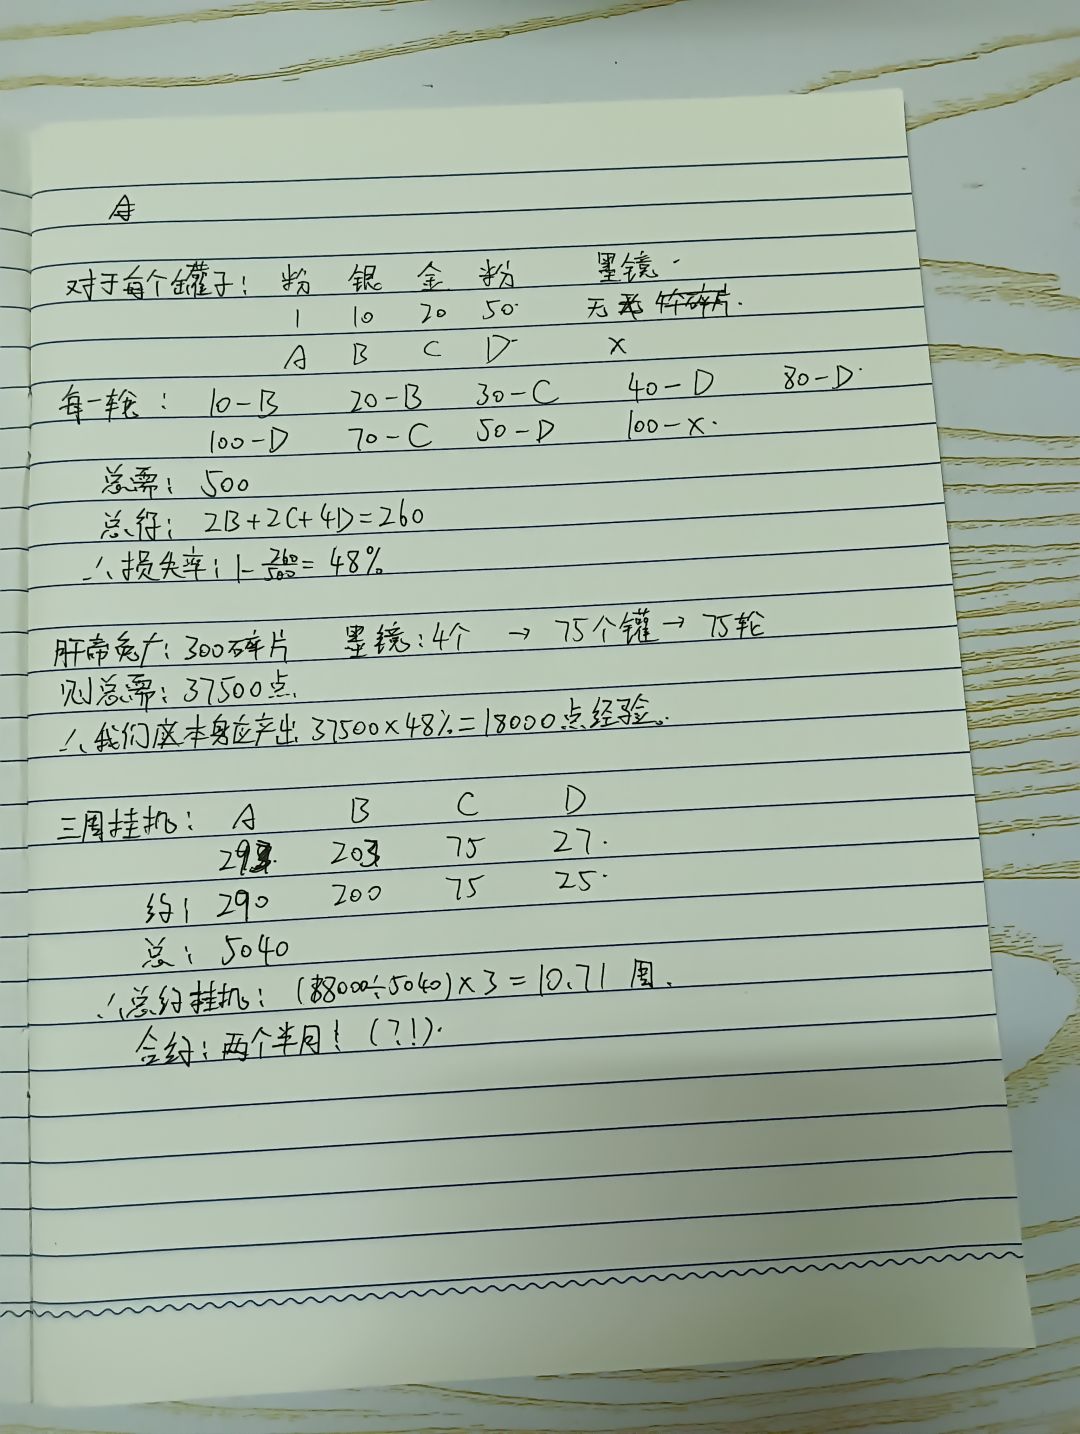 对于每个罐子: 粉 银 金 粉 墨镜.
1 10 20 50 无
A B C D X
每一轮: 10-B 20-B 30-C 40-D 80-D.
100-D 70-C 50-D 100-X.
总需: 500
总得: 2B+2C+4D=260
∴损失率: 1-260/500=48%
肝帝兔广: 300碎片 墨镜:4个 → 75个罐→75轮
则总需: 37500点.
∴我们应本身应产出 37500×48%=18000点经验.
三周挂机: A B C D
203 75 27.
约: 290 200 75 25.
总: 5040
∴总约挂机: (18000÷5040)×3=10.71 周.
合约: 两个半月! (?!).